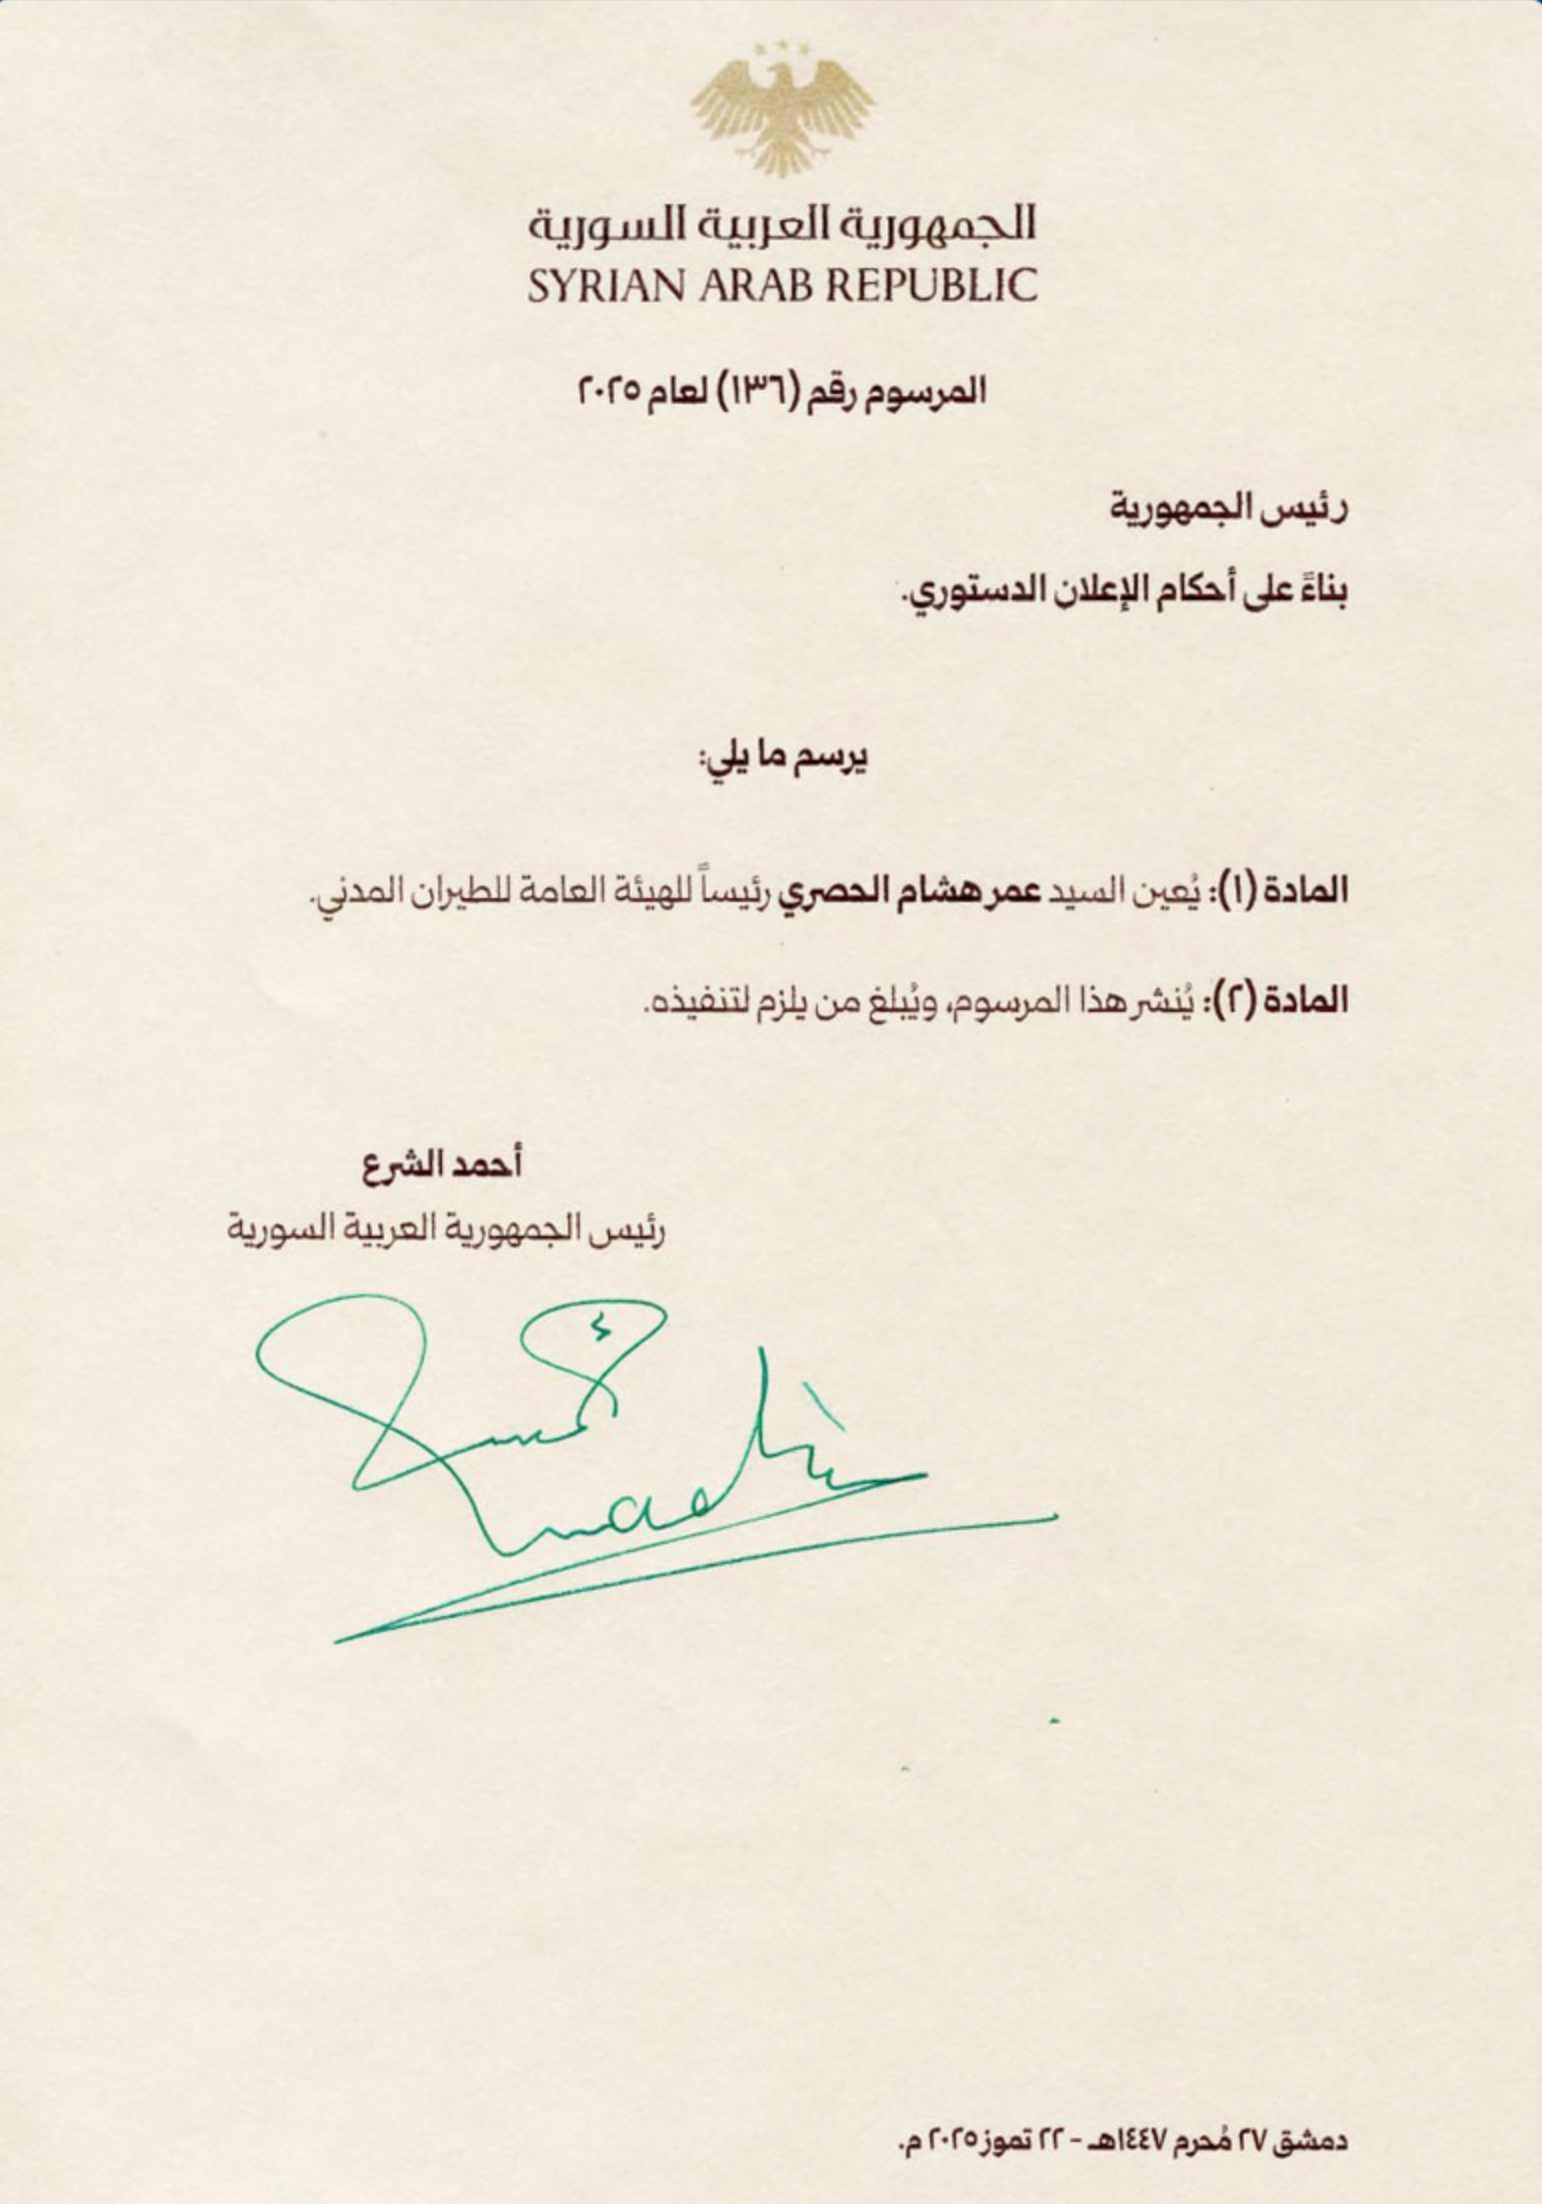 الجمهورية العربية السورية
SYRIAN ARAB REPUBLIC
المرسوم رقم (١٣٦) لعام ٢٠٢٥
رئيس الجمهورية
بناءً على أحكام الإعلان الدستوري.
يرسم ما يلي:
المادة (١): يُعين السيد عمر هشام الحصري رئيساً للهيئة العامة للطيران المدني.
المادة (٢): يُنشر هذا المرسوم، ويُبلغ من يلزم لتنفيذه.
أحمد الشرع
رئيس الجمهورية العربية السورية
دمشق ٢٧ مُحرم ١٤٤٧هـ - ٢٢ تموز ٢٠٢٥ م.